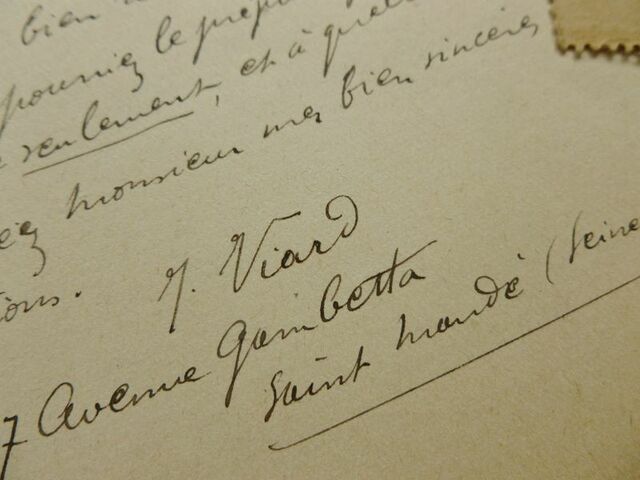 bien
pourriez le prépa
seulement, et à quel
ez monsieur mes bien sincères
ions.
J. Viard
7 Avenue Gambetta
Saint Mandé (Seine